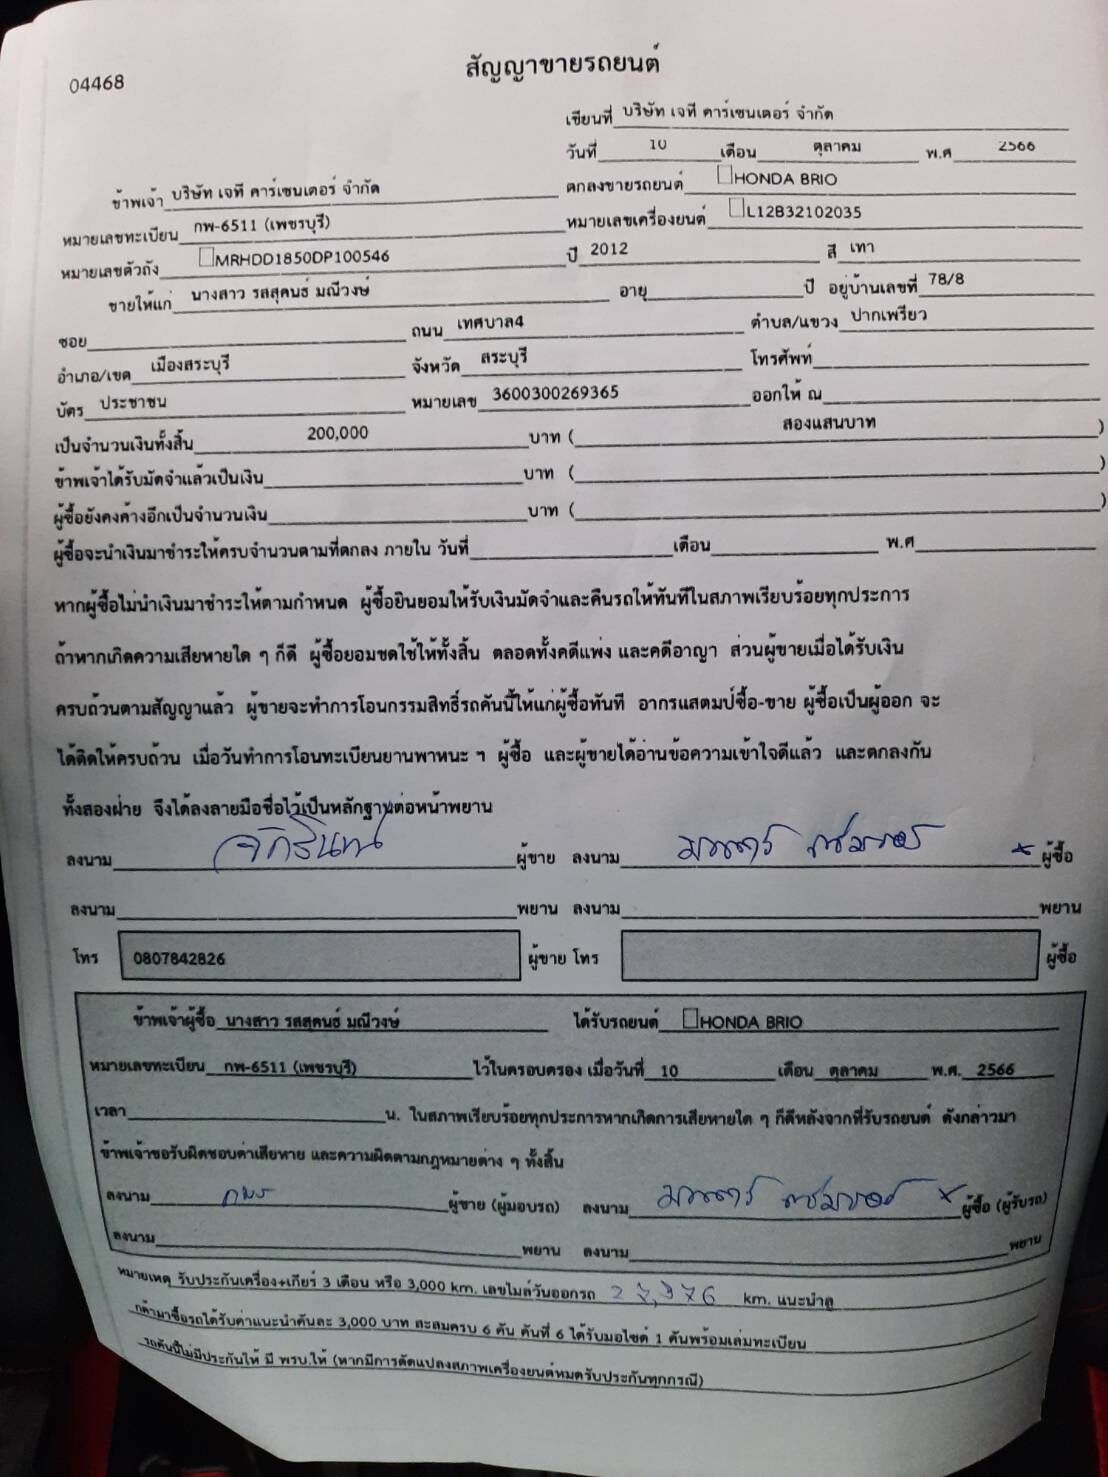 04468
สัญญาขายรถยนต์
เขียนที่ บริษัท เจที คาร์เซนเตอร์ จำกัด
วันที่ 10 เดือน ตุลาคม พ.ศ 2566
ข้าพเจ้า บริษัท เจที คาร์เซนเตอร์ จำกัด ตกลงขายรถยนต์ HONDA BRIO
หมายเลขทะเบียน กพ-6511 (เพชรบุรี) หมายเลขเครื่องยนต์ L12B32102035
หมายเลขตัวถัง MRHDD1850DP100546 ปี 2012 สี เทา
ขายให้แก่ นางสาว รสสุคนธ์ มณีวงษ์ อายุ ปี อยู่บ้านเลขที่ 78/8
ซอย ถนน เทศบาล4 ตำบล/แขวง ปากเพรียว
อำเภอ/เขต เมืองสระบุรี จังหวัด สระบุรี โทรศัพท์
บัตร ประชาชน หมายเลข 3600300269365 ออกให้ ณ
เป็นจำนวนเงินทั้งสิ้น 200,000 บาท ( สองแสนบาท )
ข้าพเจ้าได้รับมัดจำแล้วเป็นเงิน บาท ( )
ผู้ซื้อยังคงค้างอีกเป็นจำนวนเงิน บาท ( )
ผู้ซื้อจะนำเงินมาชำระให้ครบจำนวนตามที่ตกลง ภายใน วันที่ เดือน พ.ศ
หากผู้ซื้อไม่นำเงินมาชำระให้ตามกำหนด ผู้ซื้อยินยอมให้รับเงินมัดจำและคืนรถให้ทันทีในสภาพเรียบร้อยทุกประการ
ถ้าหากเกิดความเสียหายใด ๆ ก็ดี ผู้ซื้อยอมชดใช้ให้ทั้งสิ้น ตลอดทั้งคดีแพ่ง และคดีอาญา ส่วนผู้ขายเมื่อได้รับเงิน
ครบถ้วนตามสัญญาแล้ว ผู้ขายจะทำการโอนกรรมสิทธิ์รถคันนี้ให้แก่ผู้ซื้อทันที อากรแสตมป์ซื้อ-ขาย ผู้ซื้อเป็นผู้ออก จะ
ได้ติดให้ครบถ้วน เมื่อวันทำการโอนทะเบียนยานพาหนะ ฯ ผู้ซื้อ และผู้ขายได้อ่านข้อความเข้าใจดีแล้ว และตกลงกัน
ทั้งสองฝ่าย จึงได้ลงลายมือชื่อไว้เป็นหลักฐานต่อหน้าพยาน
ลงนาม ผู้ขาย ลงนาม ผู้ซื้อ
ลงนาม พยาน ลงนาม พยาน
โทร 0807842826 ผู้ขาย โทร ผู้ซื้อ
ข้าพเจ้าผู้ซื้อ นางสาว รสสุคนธ์ มณีวงษ์ ได้รับรถยนต์ HONDA BRIO
หมายเลขทะเบียน กพ-6511 (เพชรบุรี) ไว้ในครอบครอง เมื่อวันที่ 10 เดือน ตุลาคม พ.ศ. 2566
เวลา น. ในสภาพเรียบร้อยทุกประการหากเกิดการเสียหายใด ๆ ก็ดีหลังจากที่รับรถยนต์ ดังกล่าวมา
ข้าพเจ้าขอรับผิดชอบค่าเสียหาย และความผิดตามกฎหมายต่าง ๆ ทั้งสิ้น
ลงนาม ผู้ขาย (ผู้มอบรถ) ลงนาม ผู้ซื้อ (ผู้รับรถ)
ลงนาม พยาน ลงนาม พยาน
หมายเหตุ รับประกันเครื่อง+เกียร์ 3 เดือน หรือ 3,000 km. เลขไมล์วันออกรถ km. แนะนำลู
กค้ามาซื้อรถได้รับค่าแนะนำคันละ 3,000 บาท สะสมครบ 6 คัน คันที่ 6 ได้รับมอไซด์ 1 คันพร้อมเล่มทะเบียน
รถคันนี้ไม่มีประกันให้ มี พรบ.ให้ (หากมีการดัดแปลงสภาพเครื่องยนต์หมดรับประกันทุกกรณี)